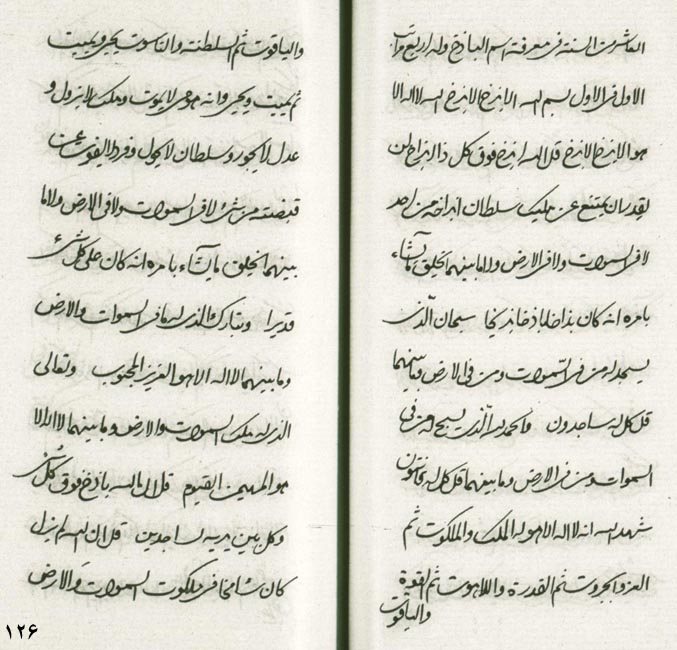 العاشر من السنة فی معرفة اسم الباذخ وله اربع مراتب
الاول فی الاول بسم الله الابذخ الابذخ الله لا اله الا
هو الابذخ الابذخ قل الله ابذخ فوق کل ذا ابذاخ لن
یقدر ان یمتنع عن ملیک سلطان ابذاخه من احد
لا فی السموات ولا فی الارض ولا ما بینهما یخلق ما یشاء
بامره انه کان بذاخا باذخا بذیخا سبحان الذی
یسجد له من فی السموات ومن فی الارض وما بینهما
قل کل له ساجدون والحمد لله الذی یسبح له من فی
السموات ومن فی الارض وما بینهما قل کل له قانتون
شهد الله انه لا اله الا هو له الملک والملکوت ثم
العز والجبروت ثم القدرة واللاهوت ثم القوة
والیاقوت
والیاقوت ثم السلطنة والناسوت یحیی ویمیت
ثم یمیت ویحیی وانه هو حی لا یموت وملک لا یزول و
عدل لا یجور وسلطان لا یحول وفرد لا یفوت عن
قبضته من شیء لا فی السموات ولا فی الارض ولا ما
بینهما یخلق ما یشاء بامره انه کان علی کل شیء
قدیرا وتبارک الذی له ما فی السموات والارض
وما بینهما لا اله الا هو العزیز المحبوب وتعالی
الذی له ملک السموات والارض وما بینهما لا اله الا
هو المهیمن القیوم قل الله باذخ فوق کل شیء
وکل بین یدیه لساجدین قل ان الله لم یزل
کان شامخا فی ملکوت السموات والارض
۱۲۶